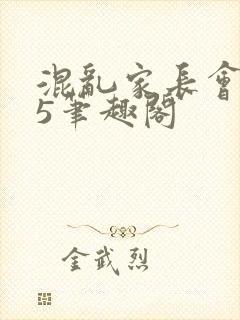 混亂家長會
5筆趣閣
金武烈